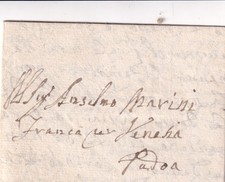 Al Sig.r Anselmo Marini
Franca per Venetia
Padoa